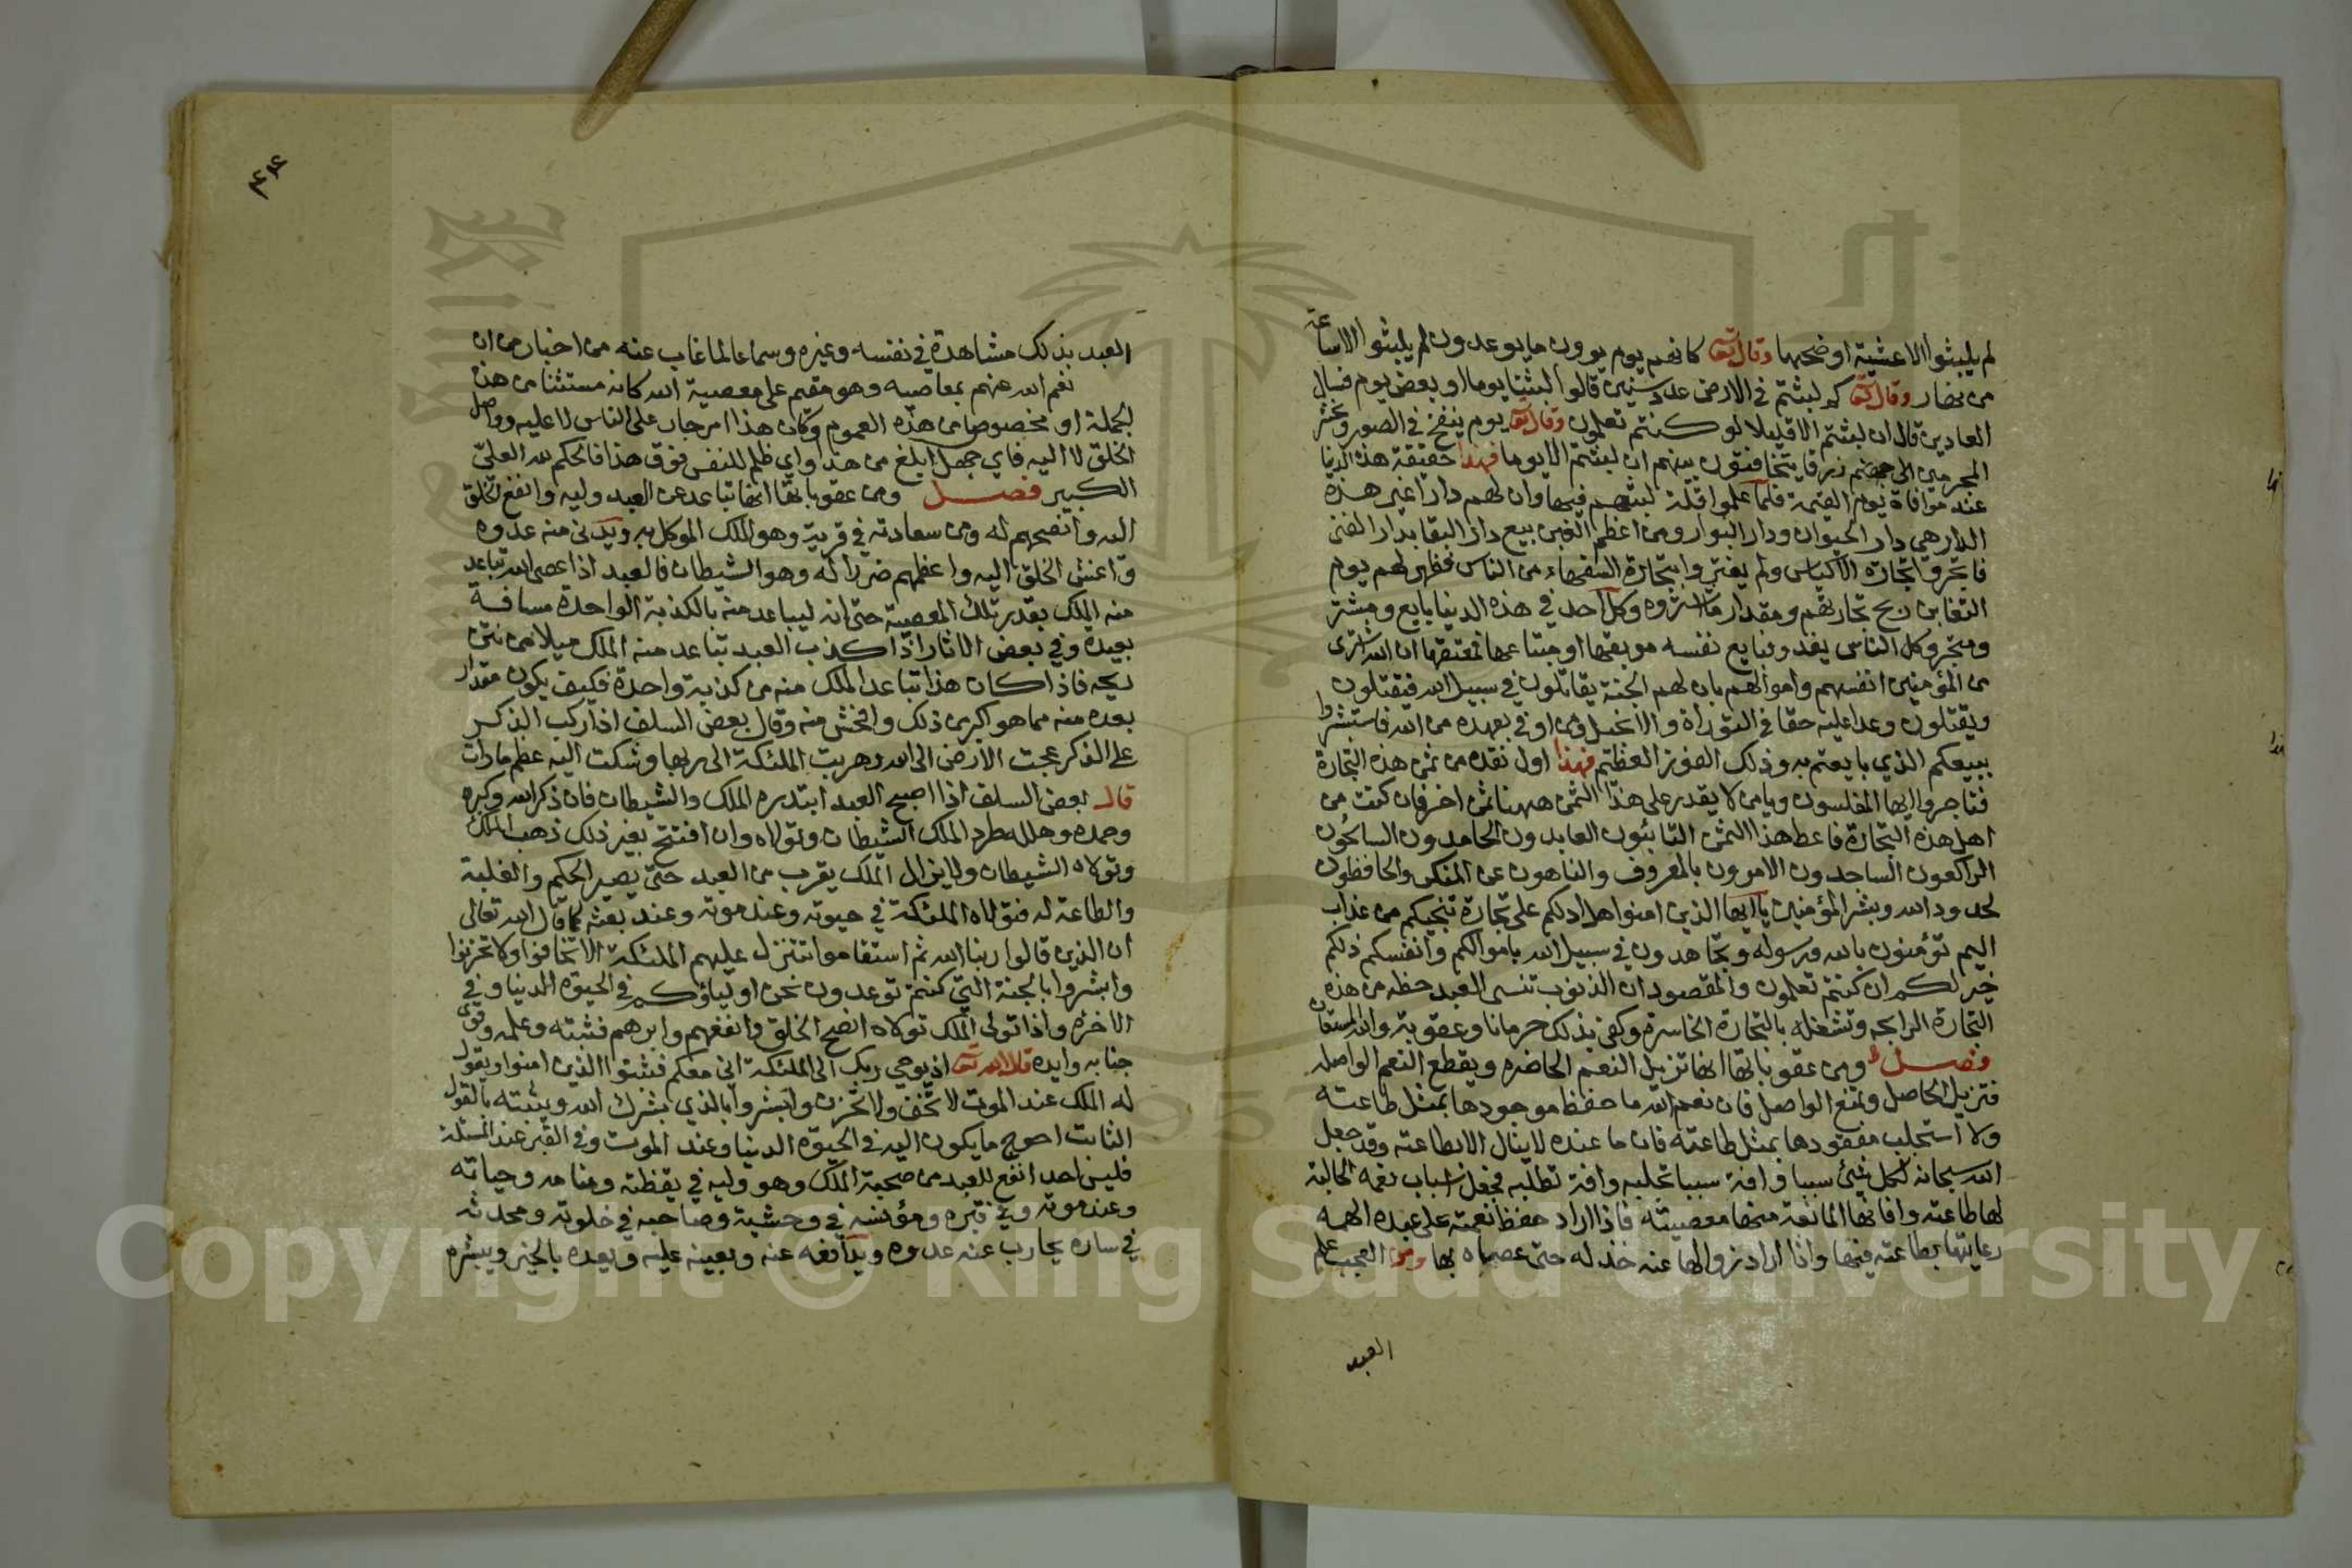 لم يلبثوا الا عشية او ضحها وقال تعا كانهم يوم يرون ما يوعدون لم يلبثوا الا ساعة
من نهار وقال تعا كم لبثتم في الارض عدد سنين قالوا لبثنا يوما او بعض يوم فسال
العادين قال ان لبثتم الا قليلا لو كنتم تعلمون وقال تعا يوم ينفخ في الصور ونحشر
المجرمين زرقا يتخافتون بينهم ان لبثتم الا يوما فهذا حقيقة هذه الدنيا
عند موافاة يوم القيمة فلما علموا قلة لبثهم فيها وان لهم دارا غير هذه
الدار هي دار الحيوان ودار البوار ومن اعظم الغبن بيع دار البقا بدار الفنى
فاتجروا تجارة الاكياس ولم يغتروا بتجارة السفهاء من الناس فظهر لهم يوم
التغابن ربح تجارتهم ومقدار ما اشتروه وكل احد في هذه الدنيا بايع ومشتر
ومتجر وكل الناس يغدو فبايع نفسه موبقها او مبتاعها فمعتقها ان الله اشترى
من المؤمنين انفسهم واموالهم بان لهم الجنة يقاتلون في سبيل الله فيقتلون
ويقتلون وعدا عليه حقا في التوراة والانجيل ومن اوفى بعهده من الله فاستبشروا
ببيعكم الذي بايعتم به وذلك الفوز العظيم فهذا اول نقده من ثمن هذه التجارة
فتاجروا ايها المفلسون ويا من لا يقدر على هذا الثمن ههنا ثمن اخر فان كنت من
اهل هذه التجارة فاعط هذا الثمن التائبون العابدون الحامدون السائحون
الراكعون الساجدون الامرون بالمعروف والناهون عن المنكر والحافظون
لحدود الله وبشر المؤمنين يا ايها الذين امنوا هل ادلكم على تجارة تنجيكم من عذاب
اليم تؤمنون بالله ورسوله وتجاهدون في سبيل الله باموالكم وانفسكم ذلكم
خير لكم ان كنتم تعلمون والمقصود ان الذنوب تنسى العبد حظه من هذه
التجارة الرابحه وتشغله بالتجارة الخاسرة وكفى بذلك حرمانا وعقوبة والله المستعان
فصل ومن عقوباتها انها تزيل النعم الحاضره ويقطع النعم الواصله
فتزيل الحاصل وتمنع الواصل فان نعم الله ما حفظ موجودها بمثل طاعته
ولا استجلب مفقودها بمثل طاعته فان ما عنده لا ينال الا بطاعته وقد جعل
الله سبحانه لكل شئ سببا وافة سببا تجلبه وافة تطلبه فجعل اسباب نعمه الجالبة
لها طاعته وافاتها المانعة منها معصيته فاذا اراد حفظ نعمته على عبده الهمه
رعايتها بطاعته فيها واذا اراد زوالها عنه خذله حتى عصاه بها ومن العجب علم
العبد
٤٤
العبد بذلك مشاهدة في نفسه وغيره وسماعا لما غاب عنه من اخبار من ان
نعم الله عنهم بمعاصيه وهو مقيم على معصية الله كانه مستثنا من هذه
الجملة او مخصوص من هذه العموم وكان هذا امر جار على الناس لا عليه وواصل
الخلق لا اليه فاي جهل ابلغ من هذا واي ظلم للنفس فوق هذا فالحكم لله العلي
الكبير فصل ومن عقوباتها انها تباعد عن العبد وليه وانفع الخلق
اليه وانصحهم له ومن سعادته في قربه وهو الملك الموكل به ويدني منه عدوه
واغش الخلق اليه واعظمهم ضررا له وهو الشيطان فالعبد اذا عصى الله تباعد
منه الملك بقدر تلك المعصية حتى انه ليباعد منه بالكذبة الواحدة مسافة
بعيدة وفي بعض الاثار اذا كذب العبد تباعد منه الملك ميلا من نتن
ريحه فاذا كان هذا تباعد الملك منه من كذبة واحدة فكيف يكون مقدار
بعده منه مما هو اكبر من ذلك وافحش منه وقال بعض السلف اذا ركب الذكر
على الذكر عجت الارض الى الله وهربت الملئكة الى ربها وشكت اليه عظم ما رات
قال بعض السلف اذا اصبح العبد ابتدره الملك والشيطان فان ذكر الله وكبره
وحمده وهلله طرد الملك الشيطان وتولاه وان افتتح بغير ذلك ذهب الملك
وتولاه الشيطان ولا يزال الملك يقرب من العبد حتى يصير الحكم والغلبة
والطاعة له فتولاه الملئكة في حيوته وعند موته وعند بعثه كما قال الله تعالى
ان الذين قالوا ربنا الله ثم استقاموا تتنزل عليهم الملئكة الا تخافوا ولا تحزنوا
وابشروا بالجنة التي كنتم توعدون نحن اولياؤكم في الحيوة الدنيا وفي
الاخرة واذا تولى الملك تولاه انصح الخلق وانفعهم وابرهم فثبته وعلمه وقوى
جنابه وايده قال الله تعا اذ يوحي ربك الى الملئكة اني معكم فثبتوا الذين امنوا ويقول
له الملك عند الموت لا تخف ولا تحزن وابشر وابالذي بشرك الله ويثبته بالقول
الثابت احوج ما يكون اليه في الحيوة الدنيا وعند الموت وفي القبر عند المسئلة
فليس احد انفع للعبد من صحبة الملك وهو وليه في يقظته ومنامه وحياته
وعند موته وفي قبره ومؤنسه في وحشية وصاحبه في خلوته ومحدثه
في ساره يحارب عنه عدوه ويدافعه عنه ويعينه عليه ويعده بالخير ويبشره
Copyright © King Saud University